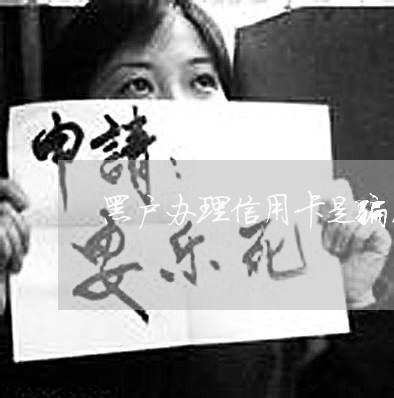 申請：
黑户办理信用卡是骗
安乐死